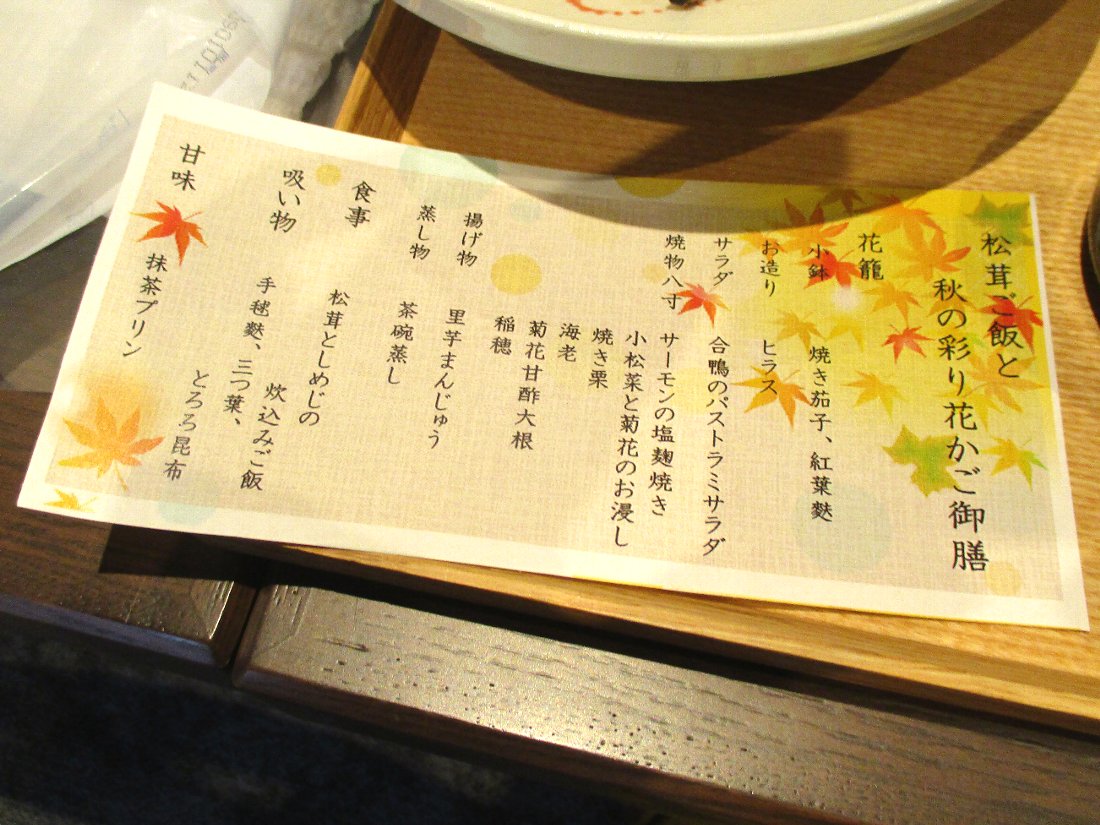 松茸ご飯と
秋の彩り花かご御膳
花籠
小鉢 焼き茄子、紅葉麩
お造り ヒラス
サラダ 合鴨のパストラミサラダ
焼物八寸 サーモンの塩麹焼き
小松菜と菊花のお浸し
焼き栗
海老
菊花甘酢大根
稲穂
揚げ物 里芋まんじゅう
蒸し物 茶碗蒸し
食事 松茸としめじの
炊込みご飯
吸い物 手毬麩、三つ葉、
とろろ昆布
甘味 抹茶プリン